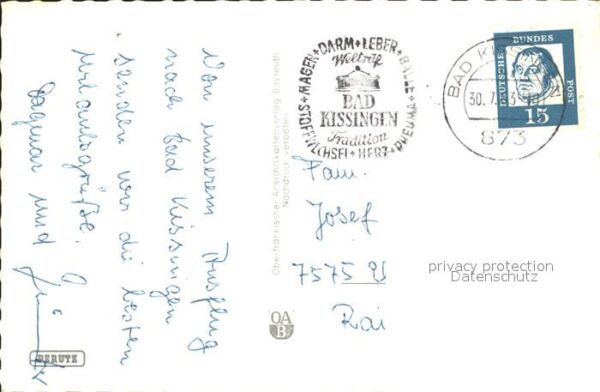 Von unserem Ausflug
nach Bad Kissingen
senden wir die besten
Urlaubsgrüße.
Dagmar und Günther
PERUTZ
Oberfränkischer Ansichtskartenverlag Bayreuth
Nachdruck verboten
OA
B
MAGEN + DARM + LEBER + GALLE + RHEUMA + HERZ + STOFFWECHSEL +
Weltruf
BAD
KISSINGEN
Tradition
BAD KISSINGEN
30.7.
873
DEUTSCHE BUNDESPOST
15
Fam.
Josef
7575 U
Rai
privacy protection
Datenschutz